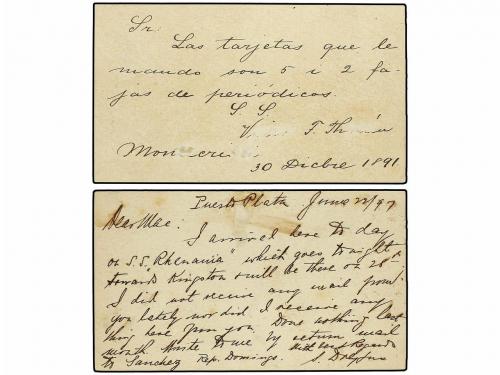 Sr.
Las tarjetas que le
mando son 5 i 2 fa-
jas de periódicos.
S. S.
F.
30 Dicbre 1891
Puerto Plata June 22/97
Dear Max:
I arrived here to day
on S.S. "Rhenania" which goes tonight
towards Kingston & will be there on 28th
I did not receive any mail from
you lately nor did I receive any
thing here from you. Done nothing last
month. Write to me by return mail
to Sanchez Rep. Domingo. With best Regards
S. Dreyfus